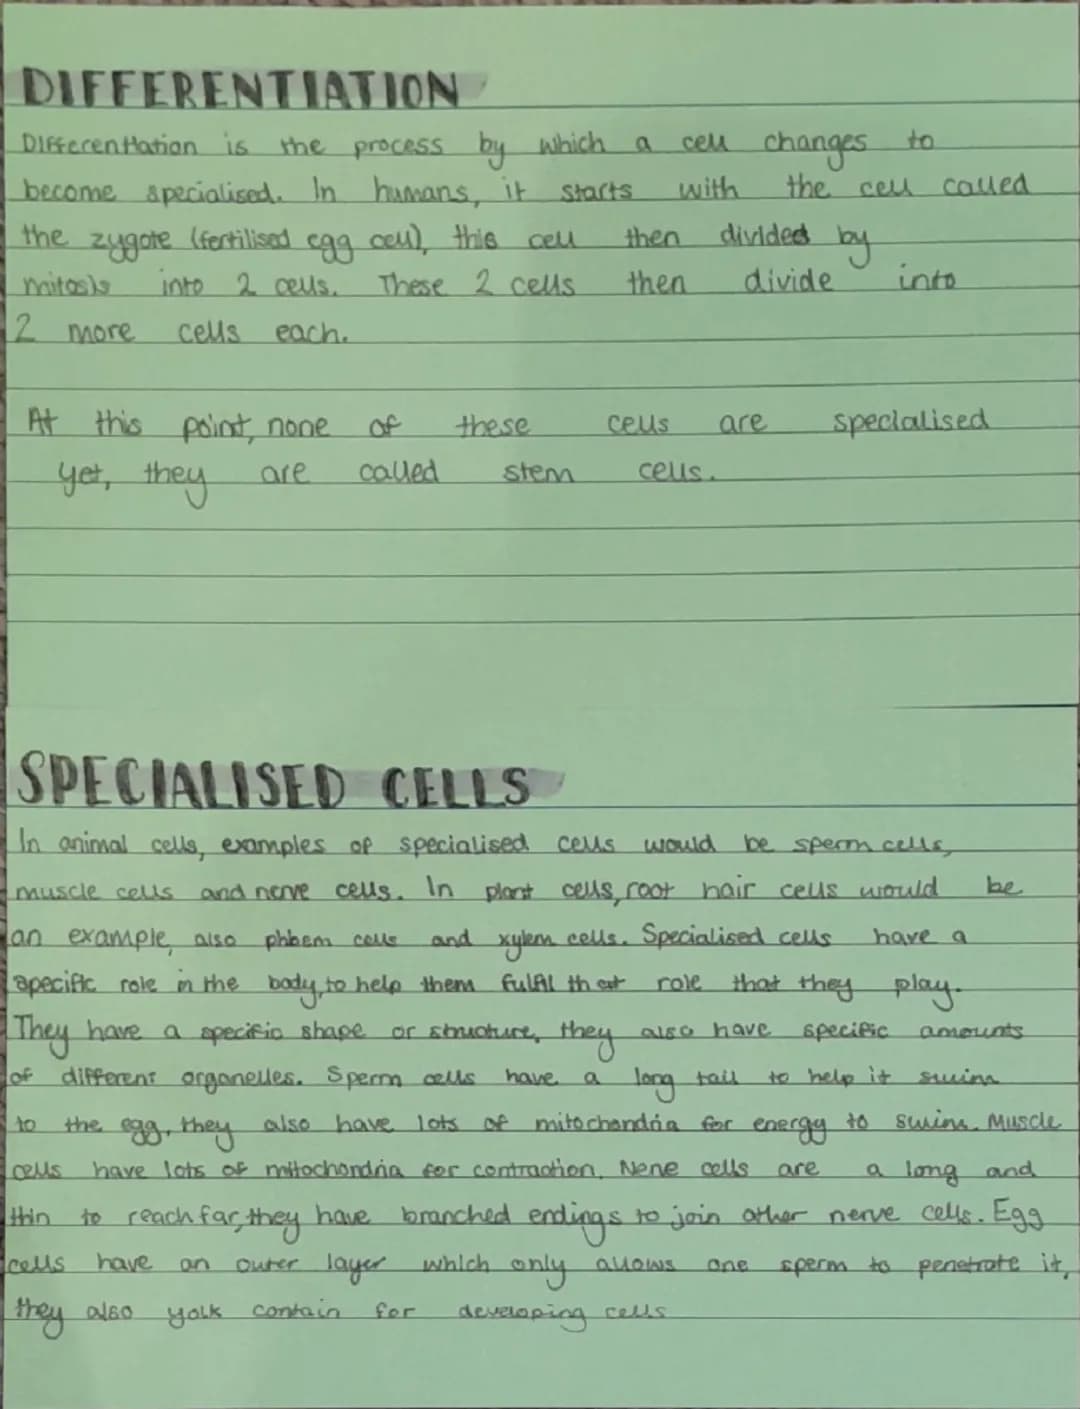 DIFFERENTIATION
Differentiation is the process by which a cell changes to
become specialised. In humans, it starts with the cell called
the zygote (fertilised egg cell), this cell then divided by
mitosis into 2 cells. These 2 cells then divide into
2 more cells each.
At this point, none of these cells are specialised
yet, they are called stem cells.
SPECIALISED CELLS
In animal cells, examples of specialised cells would be sperm cells,
muscle cells and nerve cells. In plant cells, root hair cells would be
an example, also phloem cells and xylem cells. Specialised cells have a
specific role in the body, to help them fulfil that role that they play.
They have a specific shape or structure, they also have specific amounts
of different organelles. Sperm cells have a long tail to help it swim
to the egg, they also have lots of mitochondria for energy to swim. Muscle
cells have lots of mitochondria for contraction. Nerve cells are a long and
thin to reach far, they have branched endings to join other nerve cells. Egg
cells have an outer layer which only allows one sperm to penetrate it,
they also yolk contain for developing cells